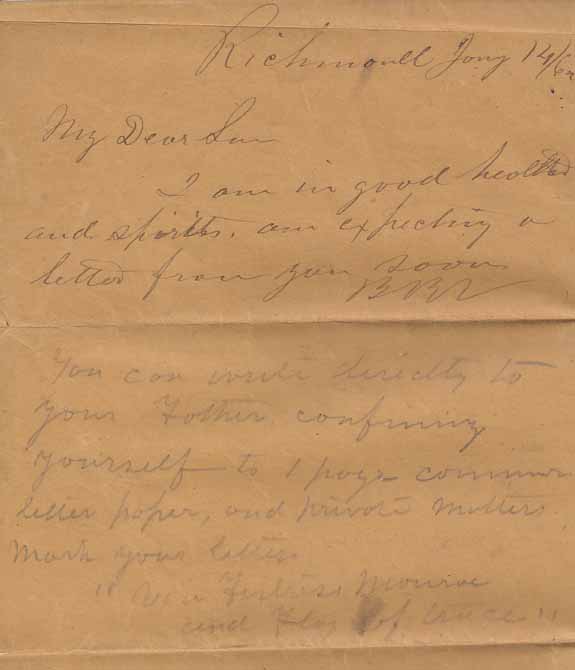 Richmond Jany 14/62
My Dear Son
I am in good health
and spirits. am expecting a
letter from you soon
You can write directly to
your Father confining
yourself to 1 page common
letter paper, and private matters.
Mark your letters
"Via Fortress Monroe
and Flag of truce"